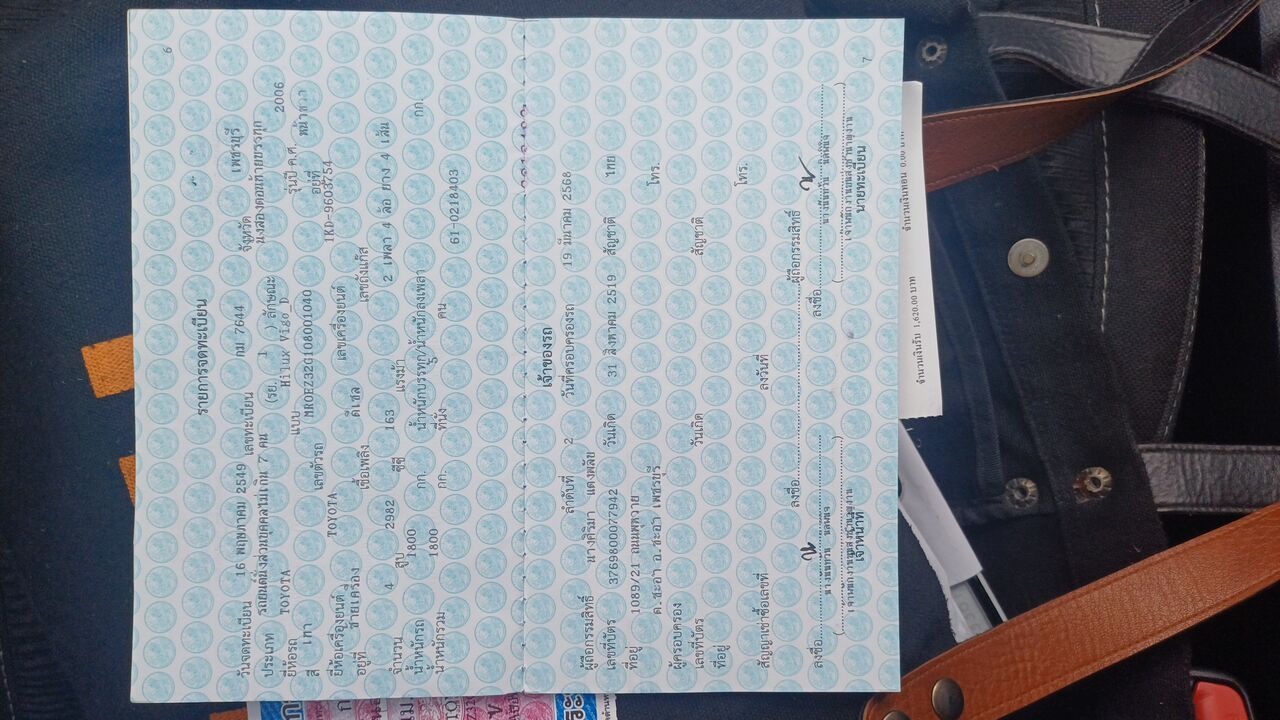 6
รายการจดทะเบียน
วันจดทะเบียน 16 พฤษภาคม 2549 เลขทะเบียน กม 7644 จังหวัด เพชรบุรี
ประเภท รถยนต์นั่งส่วนบุคคลไม่เกิน 7 คน (รย. 1 ) ลักษณะ นั่งสองตอนท้ายบรรทุก
ยี่ห้อรถ TOYOTA แบบ Hilux Vigo D รุ่นปี ค.ศ. 2006
สี เทา เลขตัวรถ MR0EZ32G108001040 อยู่ที่ หน้าขวา
ยี่ห้อเครื่องยนต์ TOYOTA เลขเครื่องยนต์ 1KD-9603754
อยู่ที่ ซ้ายเครื่อง เชื้อเพลิง ดีเซล เลขถังแก๊ส
จำนวน 4 สูบ 2982 ซีซี 163 แรงม้า 2 เพลา 4 ล้อ ยาง 4 เส้น
น้ำหนักรถ 1800 กก. น้ำหนักบรรทุก/น้ำหนักลงเพลา กก.
น้ำหนักรวม 1800 กก. ที่นั่ง 5 คน 61-0218403
เจ้าของรถ
ลำดับที่ 2 วันที่ครอบครองรถ 19 มีนาคม 2568
ผู้ถือกรรมสิทธิ์ นางศิริมา แตงพลับ
เลขที่บัตร 3769800077942 วันเกิด 31 สิงหาคม 2519 สัญชาติ ไทย
ที่อยู่ 1089/21 ถนน
โทร.
ต.ชะอำ อ.ชะอำ เพชรบุรี
ผู้ครอบครอง
เลขที่บัตร วันเกิด สัญชาติ
ที่อยู่
โทร.
สัญญาเช่าซื้อเลขที่ ลงวันที่
ลงชื่อ ผู้ถือกรรมสิทธิ์
ลงชื่อ ลงชื่อ
เจ้าหน้าที่ นายทะเบียน
7
จำนวนเงินรับ 1,620.00 บาท จำนวนเงินทอน 0.00 บาท